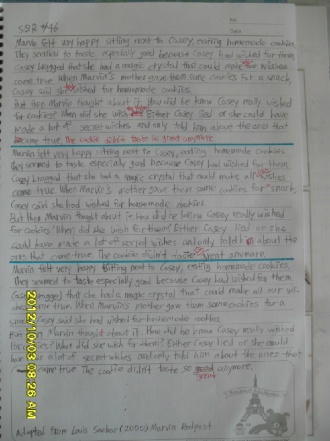 SSR #46
No.
Date
Marvin felt very happy sitting next to Casey, eating homemade cookies.
They seemed to taste especially good because Casey had wished for them.
Casey bragged that she had a magic crystal that could make all wishes
come true. When Marvin's mother gave them some cookies for a snack,
Casey said she wished for homemade cookies.
But then Marvin thought about it. How did he know Casey really wished
for cookies? When did she wish Either Casey lied or she could have
made a lot of secret wishes and only told him about the ones that
came true. The cookie didn't taste so great anymore.
Marvin felt very happy sitting next to Casey, eating homemade cookies.
They seemed to taste especially good because Casey had wished for them.
Casey bragged that she had a magic crystal that could make all wishes
come true. When Marvin's mother gave them some cookies for snack,
Casey said she had wished for homemade cookies.
But then Marvin thought about it. How did he know Casey really wished
for cookies? When did she wish for them? Either Casey lied or she
could have made a lot of secret wishes and only told him about the
ones that come true. The cookie didn't taste great anymore.
Marvin felt very happy sitting next to Casey, eating homemade cookies.
They seemed to taste especially good because Casey had wished for them
Casey bragged that she had a magic crystal that could make all
come true. When Marvin's mother gave them some cookies for a
snack, Casey said she had wished for homemade cookies.
But then Marvin thought about it. How did he know Casey really wished
for cookies? What did she wish for them? Either Casey lied or she could
have made a lot of secret wishes and only told him about the ones that
came true. The cookie didn't taste so good anymore.
great
Adapted from Louis Sachar (2000) Marvin Redpost
2012/10/03 08:26 AM